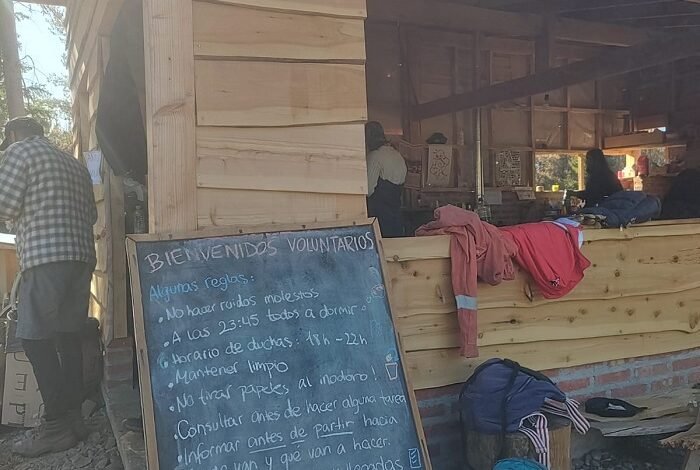 BIENVENIDOS VOLUNTARIOS
Algunas reglas:
• No hacer ruidos molestos
• A las 23:45 todos a dormir
• Horario de duchas: 18h - 22h
• Mantener limpio
• No tirar papeles al inodoro!
• Consultar antes de hacer alguna tarea
• Informar antes de partir hacia
van y qué van a hacer.
llegadas